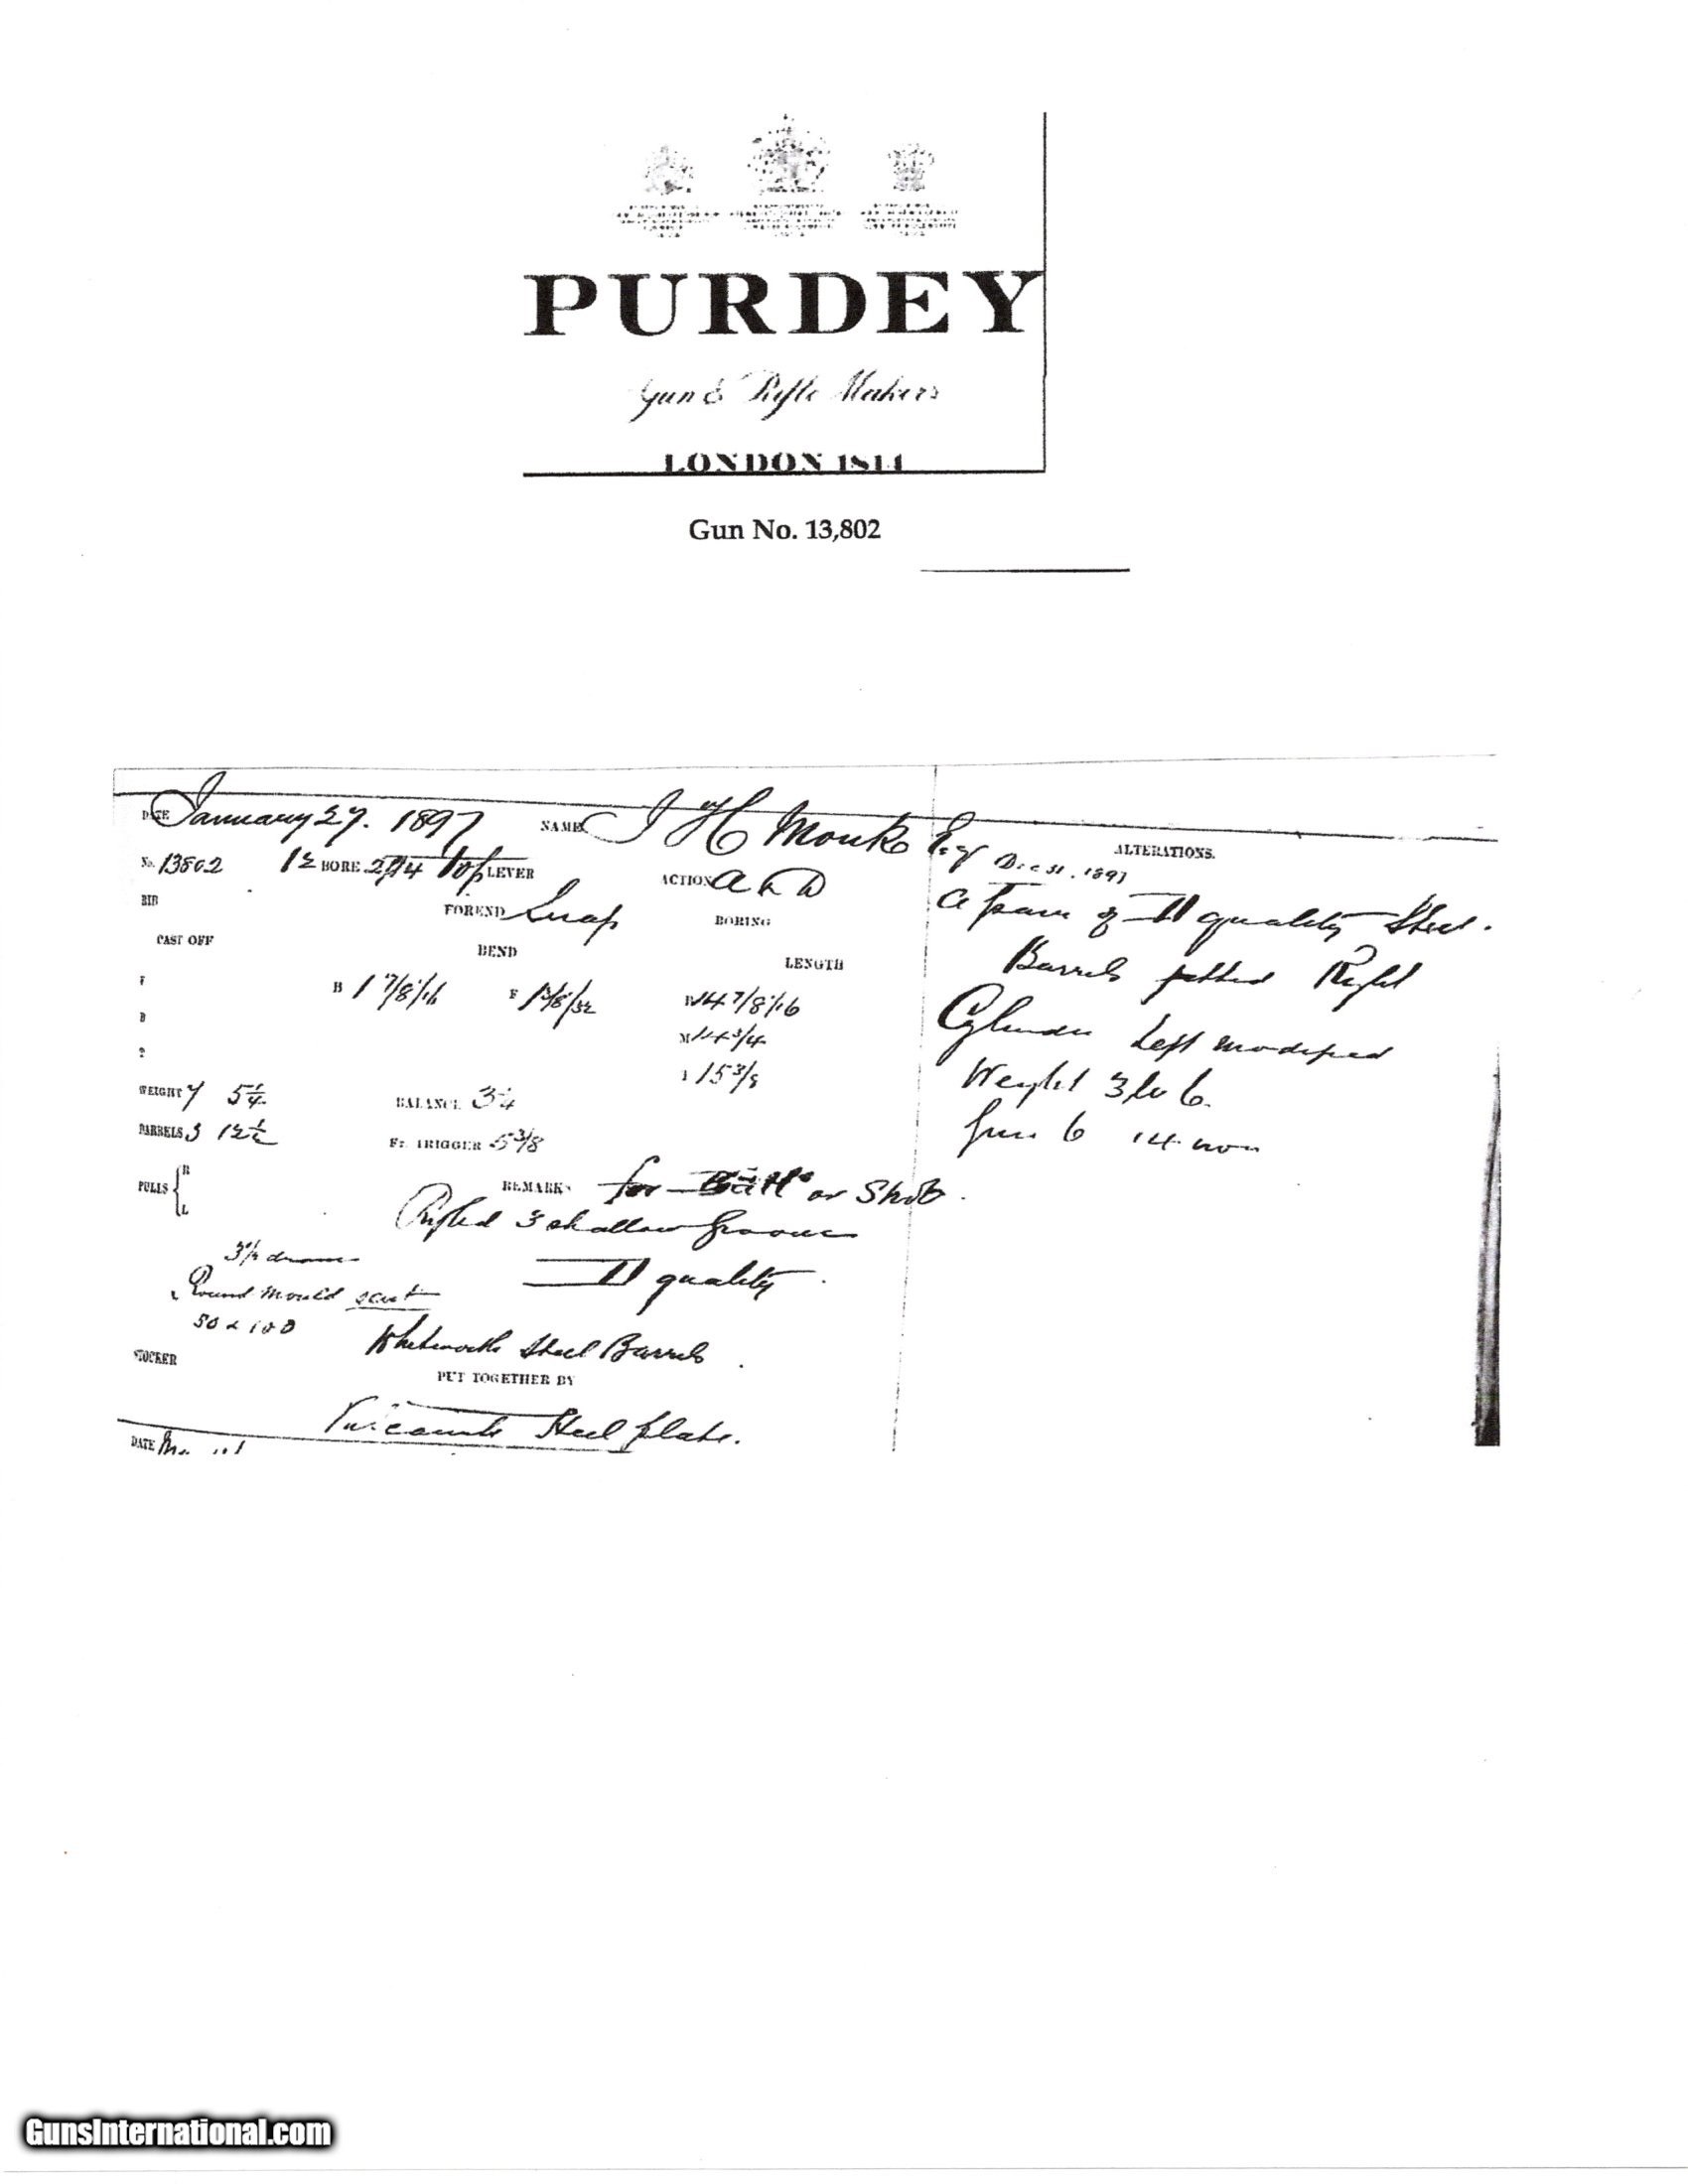 PURDEY
Gun & Rifle Makers
LONDON 1814
Gun No. 13,802
DATE January 27. 1897 NAME J H Monk Esq
ALTERATIONS.
No. 13802 12 BORE top LEVER ACTION
Dec 31. 1897
RIB FOREND Snap BORING
A pair of II quality Steel.
CAST OFF BEND LENGTH
Barrels fitted Right
F B 1 7/8/16 F 14 7/8/16
B M 14 3/4
Cylinder Left modified
T 15 3/8
Weight 3 lb 6.
WEIGHT 7 5 1/4 BALANCE 3 1/4
Gun 6 14 now
BARRELS 3 12 1/2 Fr TRIGGER 5 3/8
PULLS R L
REMARKS for Ball or Shot.
Rifled 3 shallow grooves
3 1/4 drams
II quality.
Round mould sent
50 & 100
Whitworth Steel Barrels.
STOCKER
PUT TOGETHER BY
Steel plate.
DATE
GunsInternational.com